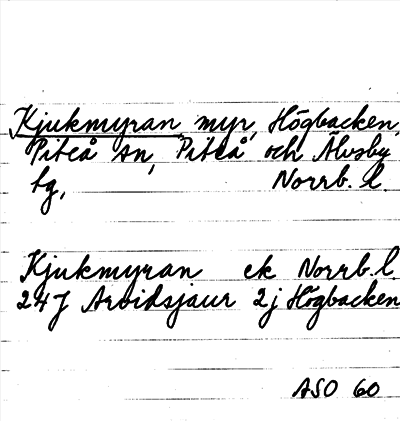 Kjukmyran, myr, Högbacken,
Piteå sn, Piteå och Älvsby
tg, Norrb. l.
Kjukmyran ek Norrb. l.
24J Arvidsjaur 2j Högbacken
ASO 60